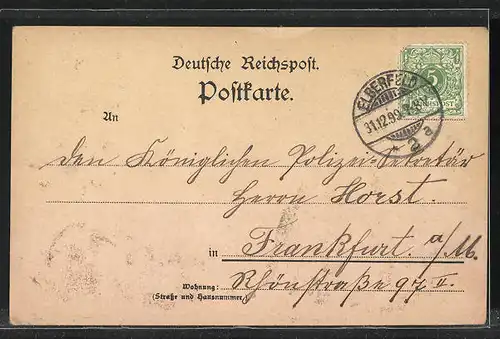 Deutsche Reichspost.
Postkarte.
ELBERFELD
31.12.99
* 2 a
5
REICHSPOST
An
den Königlichen Polizei-Sekretär
Herrn Horst.
in Frankfurt. a/M.
Wohnung: Rhönstraße 97 II.
(Straße und Hausnummer)